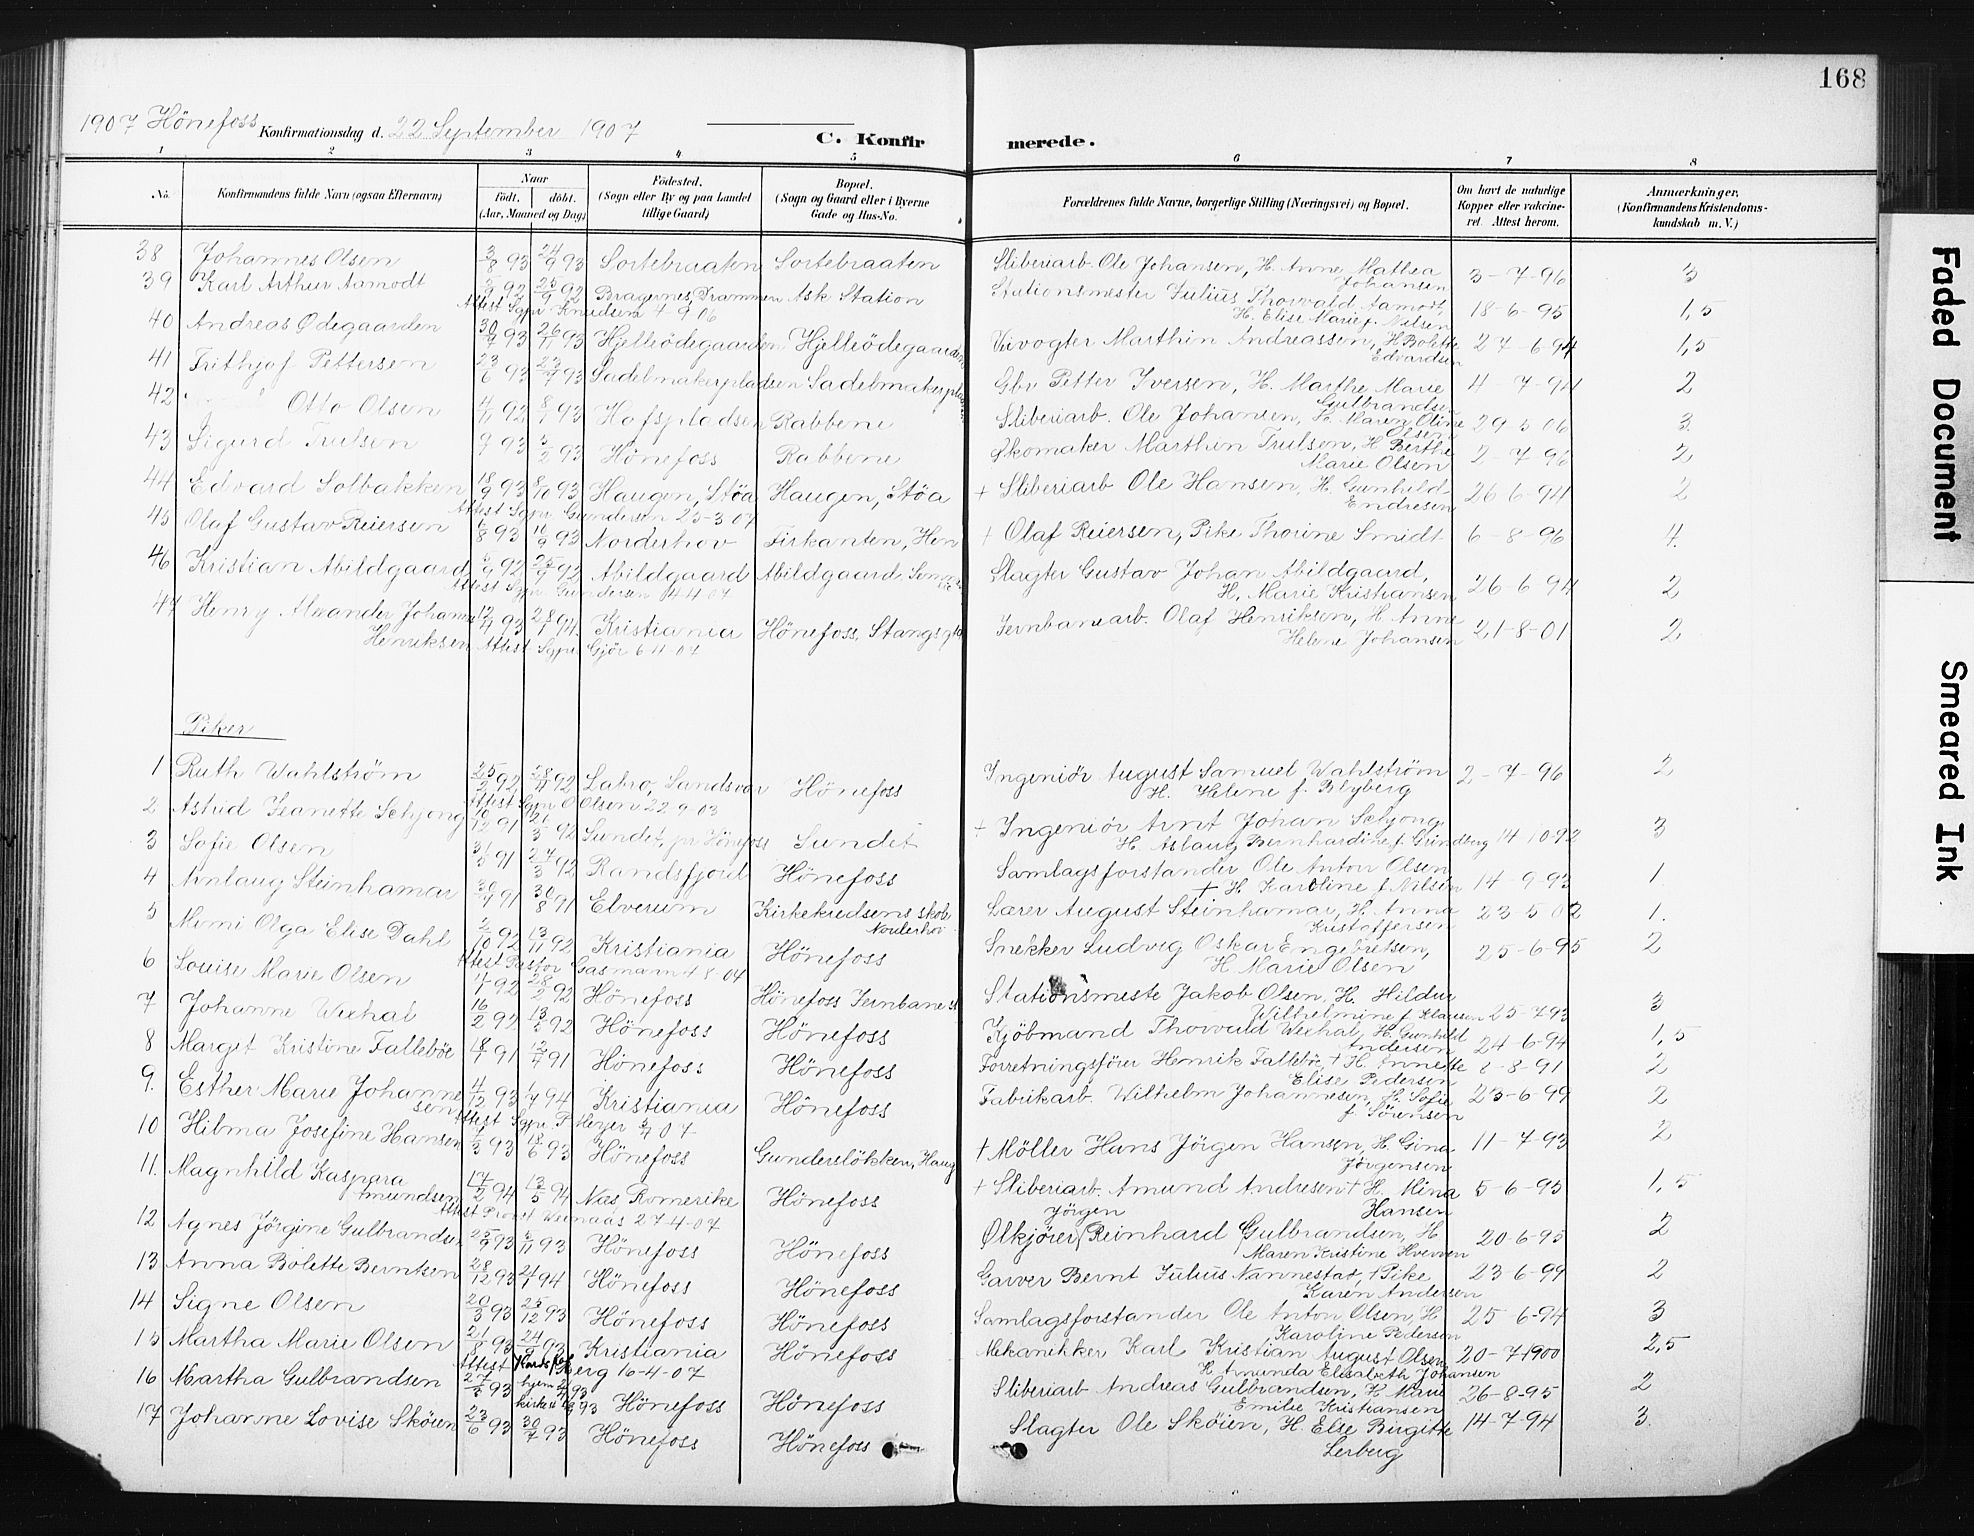 168
1907 Hönefoss Konfirmationsdag d. 22 September 1907
C. Konfirmerede.
1 2 3 4 5 6 7 8
No. Konfirmandens fulde Navn (ogsaa Efternavn) Naar födt. döbt. (Aar, Maaned og Dag) Födested. (Sogn eller By og paa Landet tillige Gaard) Bopæl. (Sogn og Gaard eller i Byerne Gade og Hus-No. Forældrenes fulde Navne, borgerlige Stilling (Næringsvei) og Bopæl. Om havt de naturlige Kopper eller vakcineret. Attest herom. Anmærkninger. (Konfirmandens Kristendomskundskab m. V.)
38 Johannes Olsen 3/8 93 24/9 93 Sortebraaten Sortebraaten Sliberiarb. Ole Johansen, H. Anne Mathea Johansen 3-7-96 3
39 Karl Arthur Aamodt 92 92 Bragernes, Drammen Ask Station Stationsmester Julius Thorvald Aamodt, H. Elise Marie f. Nilsen 18-6-95 1,5
Attest Sgpr. Knudsen 4-9 06
40 Andreas Ødegaarden 93 26/11 93 Hjelleödegaarden Hjelleödegaarden Veivogter Marthin Andreassen, H. Bolette Edvardsen 27-6-94 1,5
41 Frithjof Pettersen 23/6 93 23/7 93 Sadelmakerpladsen Sadelmakerpladsen Gbr Petter Iversen, H. Marthe Marie Gulbrandsen 4-7-94 2
42 Otto Olsen 92 93 Hofspladsen Rabbene Sliberiarb. Ole Johansen, H. Maren Oline Olsen 29 5 06 3
43 Sigurd Trulsen 93 93 Hönefoss Rabbene Skomaker Marthin Trulsen, H. Berthe Marie Olsen 2-7-96 2
44 Edvard Solbakken 18/9 93 8/10 93 Haugen, Støa Haugen, Støa + Sliberiarb Ole Hansen, H. Gunhild Endresen 26 6-94 2
Attest Sgpr Gundersen 25-3 07
45 Olaf Gustav Reiersen 93 93 Norderhov Firkanten, Hen + Olaf Reiersen, Pike Thorine Smidt 6-8-96 4.
46 Kristian Abildgaard 92 92 Abildgaard Abildgaard, Slagter Gustav Johan Abildgaard, H. Marie Kristiansen 26 6 94 2
Attest Sgpr Gundersen 14 4 07
47 Henry Alexander Johannes Henriksen 93 94 Kristiania Hönefoss, Stangsgt Jernbanearb. Olaf Henriksen, H Anne Helene Johansen 21-8-01 2
Attest Sgpr Gjör 6 4-07
Piker
1 Ruth Wahlström 92 92 Labro, Sandsvær Hönefoss Ingeniör August Samuel Wahlström H. Helene f. Blyberg 2-7-96 2
Attest Sgpr O Olsen 22 9-03
2 Astrid Jeanette Schjong 91 92 Sundet, pr Hönefoss Sundet + Ingeniör Arnt Johan Schjong H. Aslaug Bernhardine f. Grundberg 14 10-92 3
3 Sofie Olsen 91 27/3 92 Randsfjord Hönefoss Samlagsforstander Ole Anton Olsen + H. Karoline f Nilsen 14-9-93 1
4 Arnlaug Steinhamar 91 30/8 91 Elverum Kirkekredsens skole Norderhov Lærer August Steinhamar, H. Anna Kristoffersen 23-5 02 1.
5 Mimi Olga Elise Dahl 2/10 92 13/11 92 Kristiania Hönefoss Snekker Ludvig Oskar Engebretsen, H Marie Olsen 25-6-95 2
Attest Pastor Gasmann 4 8 04
6 Louise Marie Olsen 92 28/2 92 Hönefoss Hönefoss Jernbanest Stationsmeste Jakob Olsen, H. Hildur Wilhelmine f. Klausen 25-7-93 3
7 Johanne Wexhal 16/2 92 13/ 92 Hönefoss Hönefoss Kjöbmand Thorvald Wexhal, H. Gunhild Andersen 24-6-94 1,5
8 Marget Kristine Fallebøe 18/ 91 12/ 91 Hönefoss Hönefoss Forretningsförer Henrik Fallebøe, + H. Annette Elise Pedersen 8-91 2
9. Esther Marie Johannesen 4/12 93 94 Kristiania Hönefoss Fabrikarb. Wilhelm Johannesen, H. Sofie f. Sörensen 23-6-99 2
Attest Sgpr P Meyer 07
10 Hilma Josefine Hansen 93 18/6 93 Hönefoss Gunderslökken, Haug + Möller Hans Jörgen Hansen, H. Gina Jörgensen 11-7-93 2
11. Magnhild Kaspara Amundsen 17/2 94 13/5 94 Næs Romerike Hönefoss + Sliberiarb. Amund Andresen + H. Mina Hansen 5-6-95 1,5
Attest Provst 27 4-07
12 Agnes Jörgine Gulbrandsen 93 93 Hönefoss Hönefoss Ølkjörer Jörgen Reinhard Gulbrandsen, H Maren Kristine Hverven 20-6-95 2
13 Anna Bolette Berntsen 28/12 93 94 Hönefoss Hönefoss Garver Bernt Julius Nannestad, + Pike Karen Andersen 23-6-99 2
14 Signe Olsen 20/3 93 25/12 93 Hönefoss Hönefoss Samlagsforstander Ole Anton Olsen, H Karoline Pedersen 25 6-94 3
15 Martha Marie Olsen 21/8 93 24/9 93 Kristiania Hönefoss Mekanekker Karl Kristian August Olsen H Amunda Elisabeth Johansen 20-7-1900 2,5
Attest Berg 16-4-07
16 Martha Gulbrandsen 27/ 93 hjem 93 kirken 93 Hönefoss Hönefoss Sliberiarb Andreas Gulbrandsen, H Marie Emilie Kristiansen 26-8-95 2
17 Johanne Lovise Skøien 23/6 93 30/7 93 Hönefoss Hönefoss Slagter Ole Skøien, H. Else Birgitte Lerberg 14-7-94 3
Faded Document
Smeared Ink